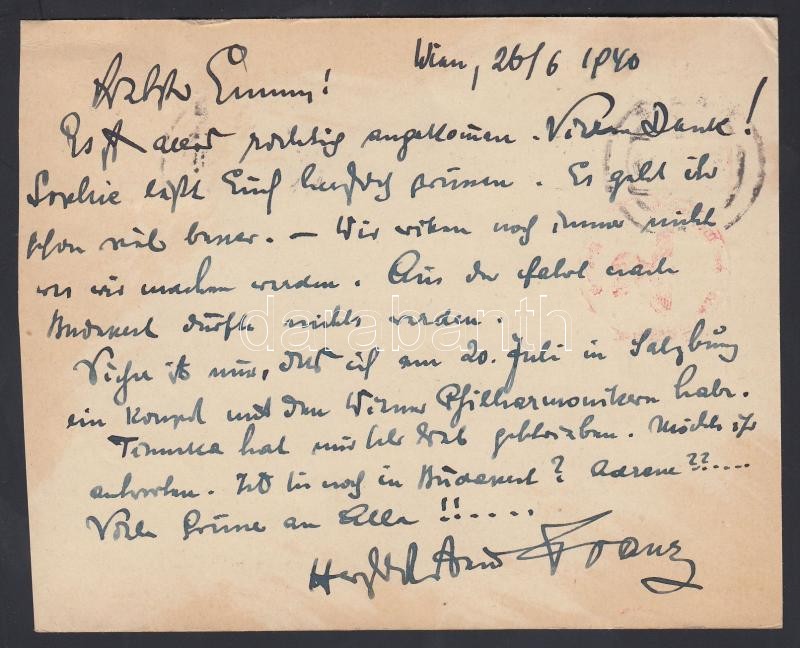 Wien, 26/6 1940
Emmy!
Es ist alles richtig angekommen. Vielen Dank!
Sophie läßt Euch herzlich grüssen. Es geht ihr
schon viel besser. – Wir wissen noch immer nicht
was wir machen werden. Aus der Fahrt nach
Budapest dürfte nichts werden.
Sicher ist nur, dass ich am 20. Juli in Salzburg
ein Konzert mit den Wiener Philharmonikern habe.
hat mir geschrieben. Möchte ihr
antworten. Ist sie noch in Budapest? Adresse??.....
Viele Grüsse an Ella!!.....
Herzlichst Euer Franz
darabanth